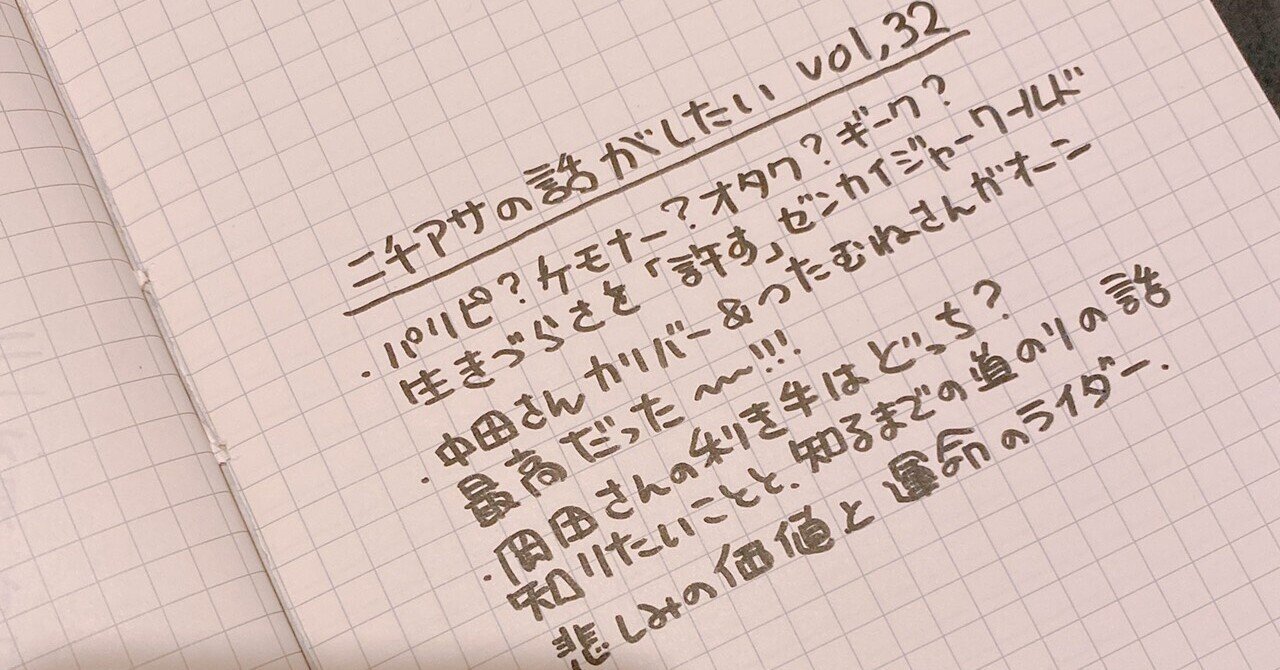 ニチアサの話がしたい vol,32
・パリピ？ケモナー？オタク？ギーク？
生きづらさを「許す」ゼンカイジャーワールド
・中田さんカリバー＆つたむねさんガオーン
最高だった〜!!!
・岡田さんの利き手はどっち？
知りたいことと、知るまでの道のりの話
悲しみの価値と運命のライダー.